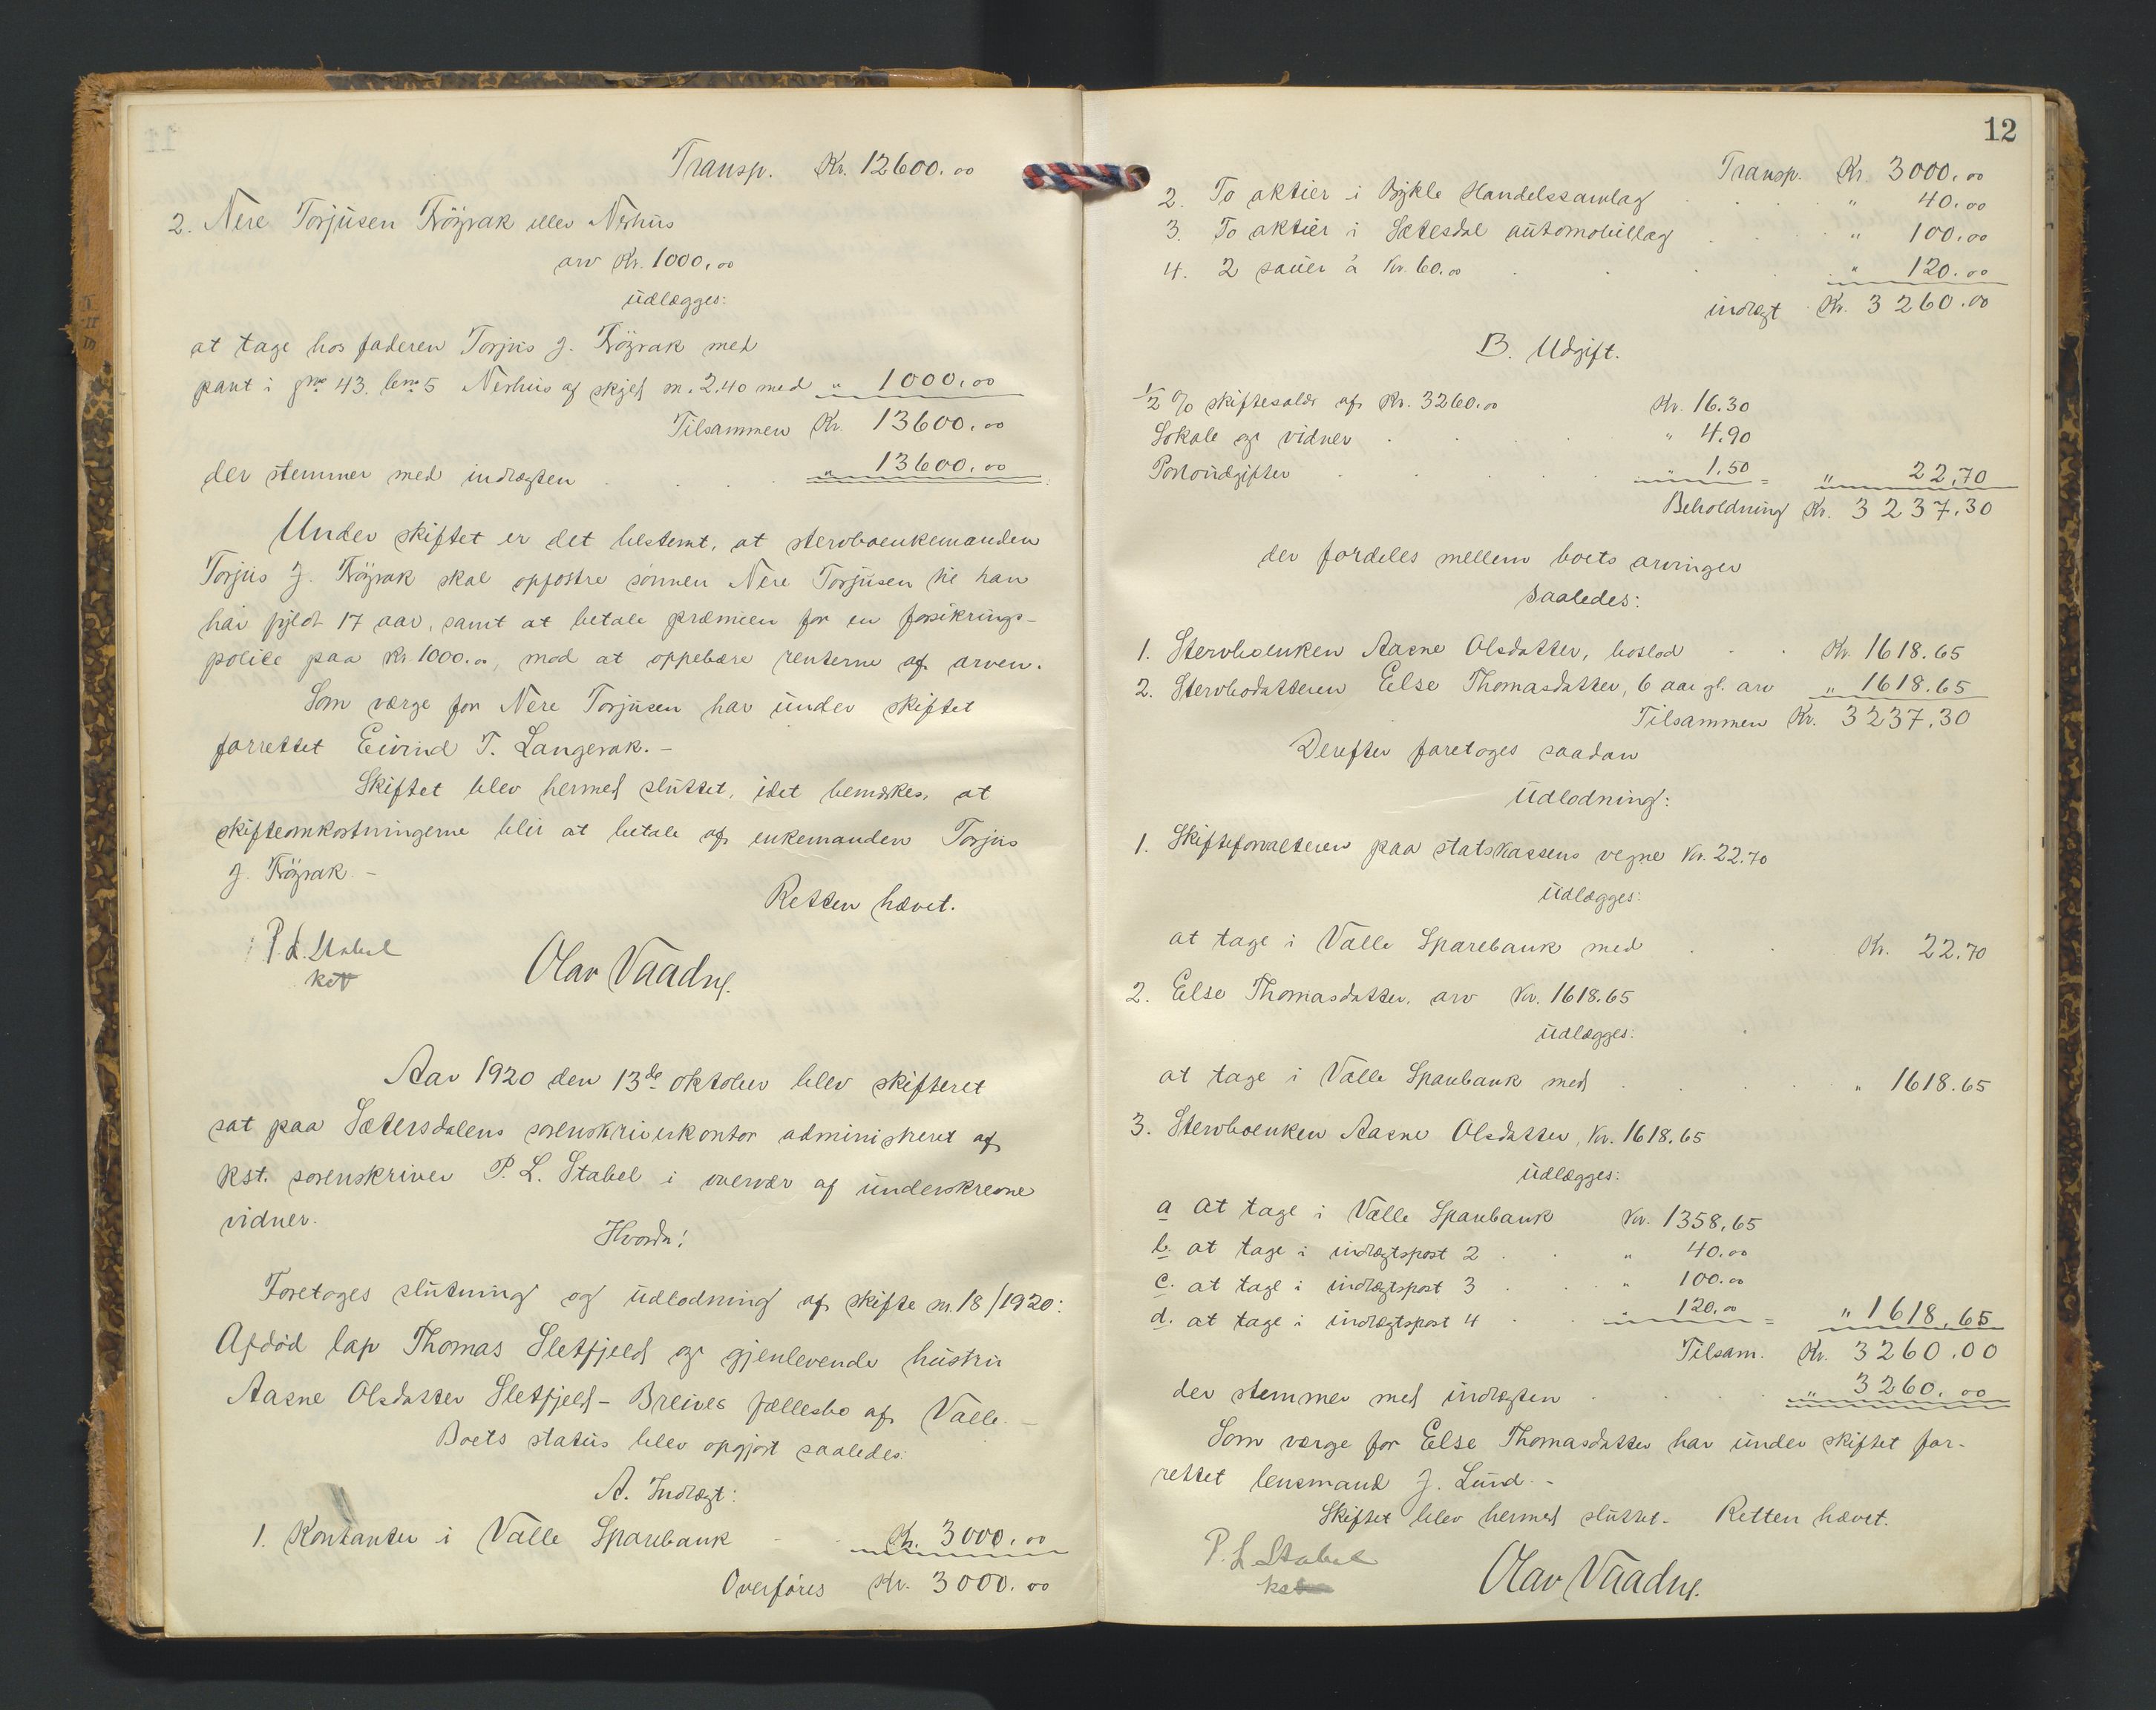 Transp. Kr. 12600.00
2. Nere Torjusen Frøysak eller Nerhus
arv Kr. 1000.00
udlægges:
at tage hos faderen Torjus J. Frøysak med
pant i gno 43. bno 5 Nerhus af skyld m. 2.40 med " 1000.00
Tilsammen Kr. 13600.00
der stemmer med indtægten . . . . " 13600.00
Under skiftet er det bestemt, at stervboenkemanden
Torjus J. Frøysak skal opfostre sønnen Nere Torjusen til han
har fyldt 17 aar, samt at betale præmien for en forsikrings-
police paa kr. 1000.00, mod at oppebære renterne af arven.
Som værge for Nere Torjusen har under skiftet
forrettet Eivind T. Langerak. -
Skiftet blev hermed sluttet, idet bemærkes, at
skifteomkostningerne blir at betale af enkemanden Torjus
J. Frøysak. -
Retten hævet.
P. L. Stabel
kst
Olav Vaadny.
Aar 1920 den 13de oktober blev skifteret
sat paa Sætersdalens sorenskriverkontor administreret af
kst. sorenskriver P. L. Stabel i overvær af underskrevne
vidner.
Hvorda:
Foretoges slutning og udlodning af skifte nr. 18/1920:
Afdød lap Thomas Sletfjeld og gjenlevende hustru
Aasne Olsdatter Sletfjeld - Breives fællesbo af Valle. -
Boets status blev opgjort saaledes:
A. Indtægt:
1. Kontanter i Valle Sparebank - . Kr. 3000.00
Overføres Kr. 3000.00
12
Transp. Kr. 3000.00
2. To aktier i Bykle Handelssamlag . . . " 40.00
3. To aktier i Sætesdal automobillag . . . " 100.00
4. 2 sauer à Kr. 60.00 . . . . " 120.00
indtægt Kr. 3260.00
B. Udgift.
1/2 % skiftesalær af Kr. 3260.00 Kr. 16.30
Lokale og vidner . . . " 4.90
Portoudgifter . . . . " 1.50 = " 22.70
Beholdning Kr. 3237.30
der fordeles mellem boets arvinger
saaledes:
1. Stervboenken Aasne Olsdatter, boslod . . Kr. 1618.65
2. Stervbodatteren Else Thomasdatter, 6 aar gl. arv " 1618.65
Tilsammen Kr. 3237.30
Derefter foretoges saadan
Udlodning:
1. Skifteforvalteren paa statskassens vegne Kr. 22.70
udlægges:
at tage i Valle Sparebank med . . Kr. 22.70
2. Else Thomasdatter, arv Kr. 1618.65
udlægges:
at tage i Valle Sparebank med . . . . " 1618.65
3. Stervboenken Aasne Olsdatter, Kr. 1618.65
udlægges:
a at tage i Valle Sparebank Kr. 1358.65
b. at tage i indtægtspost 2 . . " 40.00
c. at tage i indtægtspost 3 . . " 100.00
d. at tage i indtægtspost 4 . . " 120.00 = " 1618.65
Tilsam. Kr. 3260.00
der stemmer med indtægten . . . . " 3260.00
Som værge for Else Thomasdatter har under skiftet for-
rettet lensmand J. Lund. -
Skiftet blev hermed sluttet. - Retten hævet.
P. L. Stabel
kst
Olav Vaadny.